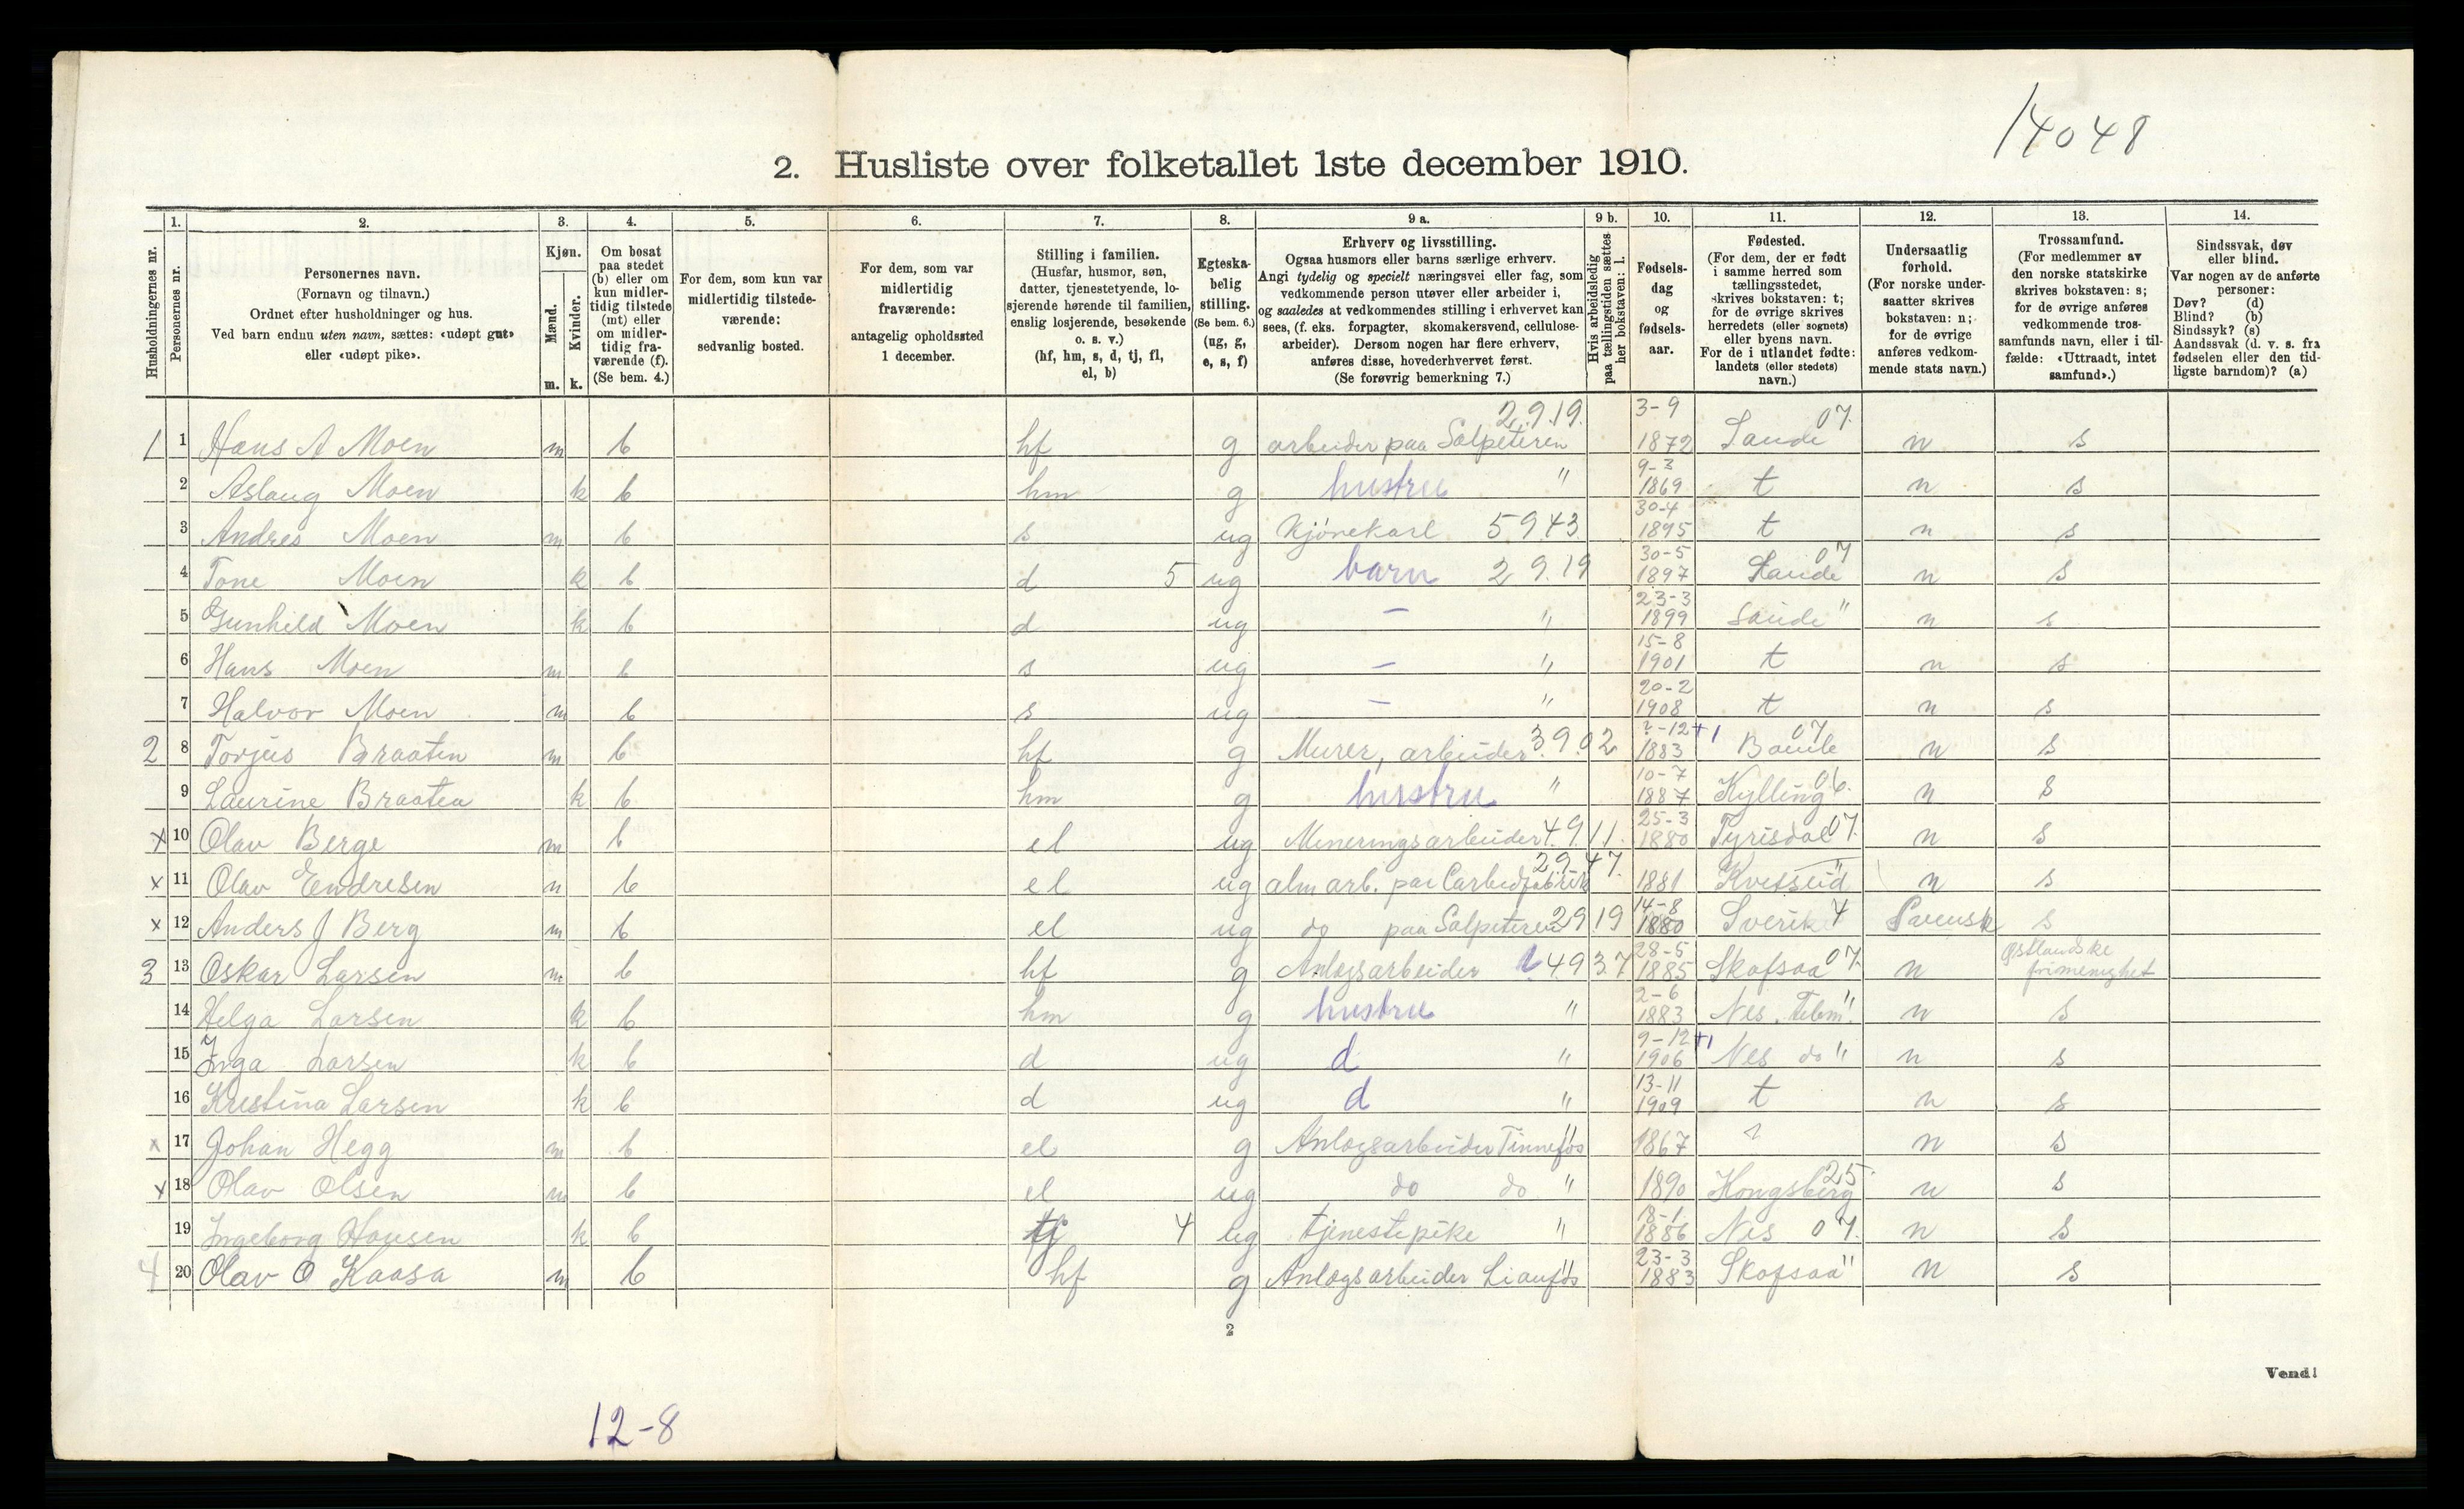 14048
2. Husliste over folketallet 1ste december 1910.
Husholdningernes nr.
1. Personernes nr.
2. Personernes navn.
(Fornavn og tilnavn.)
Ordnet efter husholdninger og hus.
Ved barn endnu uten navn, sættes: «udøpt gut»
eller «udøpt pike».
3. Kjøn.
Mænd. m.
Kvinder. k.
4. Om bosat
paa stedet
(b) eller om
kun midler-
tidig tilstede
(mt) eller
om midler-
tidig fra-
værende (f).
(Se bem. 4.)
5. For dem, som kun var
midlertidig tilstede-
værende:
sedvanlig bosted.
6. For dem, som var
midlertidig
fraværende:
antagelig opholdssted
1 december.
7. Stilling i familien.
(Husfar, husmor, søn,
datter, tjenestetyende, lo-
sjerende hørende til familien,
enslig losjerende, besøkende
o. s. v.)
(hf, hm, s, d, tj, fl,
el, b)
8. Egteska-
belig
stilling.
(Se bem. 6.)
(ug, g,
e, s, f)
9 a. Erhverv og livsstilling.
Ogsaa husmors eller barns særlige erhverv.
Angi tydelig og specielt næringsvei eller fag, som
vedkommende person utøver eller arbeider i,
og saaledes at vedkommendes stilling i erhvervet kan
sees, (f. eks. forpagter, skomakersvend, cellulose-
arbeider). Dersom nogen har flere erhverv,
anføres disse, hovederhvervet først.
(Se forøvrig bemerkning 7.)
9 b. Hvis arbeidsledig
paa tællingstiden sættes
her bokstaven: l.
10. Fødsels-
dag
og
fødsels-
aar.
11. Fødested.
(For dem, der er født
i samme herred som
tællingsstedet,
skrives bokstaven: t;
for de øvrige skrives
herredets (eller sognets)
eller byens navn.
For de i utlandet fødte:
landets (eller stedets)
navn.)
12. Undersaatlig
forhold.
(For norske under-
saatter skrives
bokstaven: n;
for de øvrige
anføres vedkom-
mende stats navn.)
13. Trossamfund.
(For medlemmer av
den norske statskirke
skrives bokstaven: s;
for de øvrige anføres
vedkommende tros-
samfunds navn, eller i til-
fælde: «Uttraadt, intet
samfund».)
14. Sindssvak, døv
eller blind.
Var nogen av de anførte
personer:
Døv? (d)
Blind? (b)
Sindssyk? (s)
Aandssvak (d. v. s. fra
fødselen eller den tid-
ligste barndom)? (a)
1 1 Hans A Moen m b hf g arbeider paa Salpeteren 2.9.19. 3-9 1872 Saude 07. n s
2 Aslaug Moen k b hm g hustru " 9-3 1869 t n s
3 Andres Moen m b s ug Kjørekarl 5943 30-4 1895 t n s
4 Tone Moen k b d 5 ug barn 2 9.19 30-5 1897 Saude 07 n s
5 Gunhild Moen k b d ug — " 23-3 1899 Saude " n s
6 Hans Moen m b s ug — " 15-8 1901 t n s
7 Halvor Moen m b s ug — " 20-2 1908 t n s
2 8 Torjus Braaten m b hf g Murer, arbeider 3.9.02 ?-12 +1 1883 Bamle 07 n s
9 Laurine Braaten k b hm g hustru " 10-7 1887 Kylling 06. n s
x 10 Olav Berge m b el ug Mineringsarbeider 4.9.11. 25-3 1880 Tyrisdal 07. n s
x 11 Olav Endresen m b el ug alm arb. paa Carbedfabrik 29.47. 1881 Kvitseid " n s
x 12 Anders J Berg m b el ug do paa Salpeteren 29.19 14-8 1880 Sverike 4 Svensk s
3 13 Oskar Larsen m b hf g Anlægsarbeider 49 37 28-5 1885 Skafsaa 07. n Østlandske frimenighet
14 Helga Larsen k b hm g hustru " 2-6 1883 Nes. Telem. " n s
15 Inga Larsen k b d ug d " 9-12 +1 1906 Nes do " n s
16 Kristina Larsen k b d ug d " 13-11 1909 t n s
x 17 Johan Hegg m b el g Anlægsarbeider Tinnefos " 1867 ? n s
x 18 Olav Olsen m b el ug do do " 1890 Kongsberg 25. n s
19 Ingeborg Hansen k b tj 4 ug tjenestepike " 18-1 1886 Nes 07. n s
4 20 Olav O Kaasa m b hf g Anlægsarbeider Lianfos " 23-3 1883 Skafsaa " n s
2
Vend!
12-8